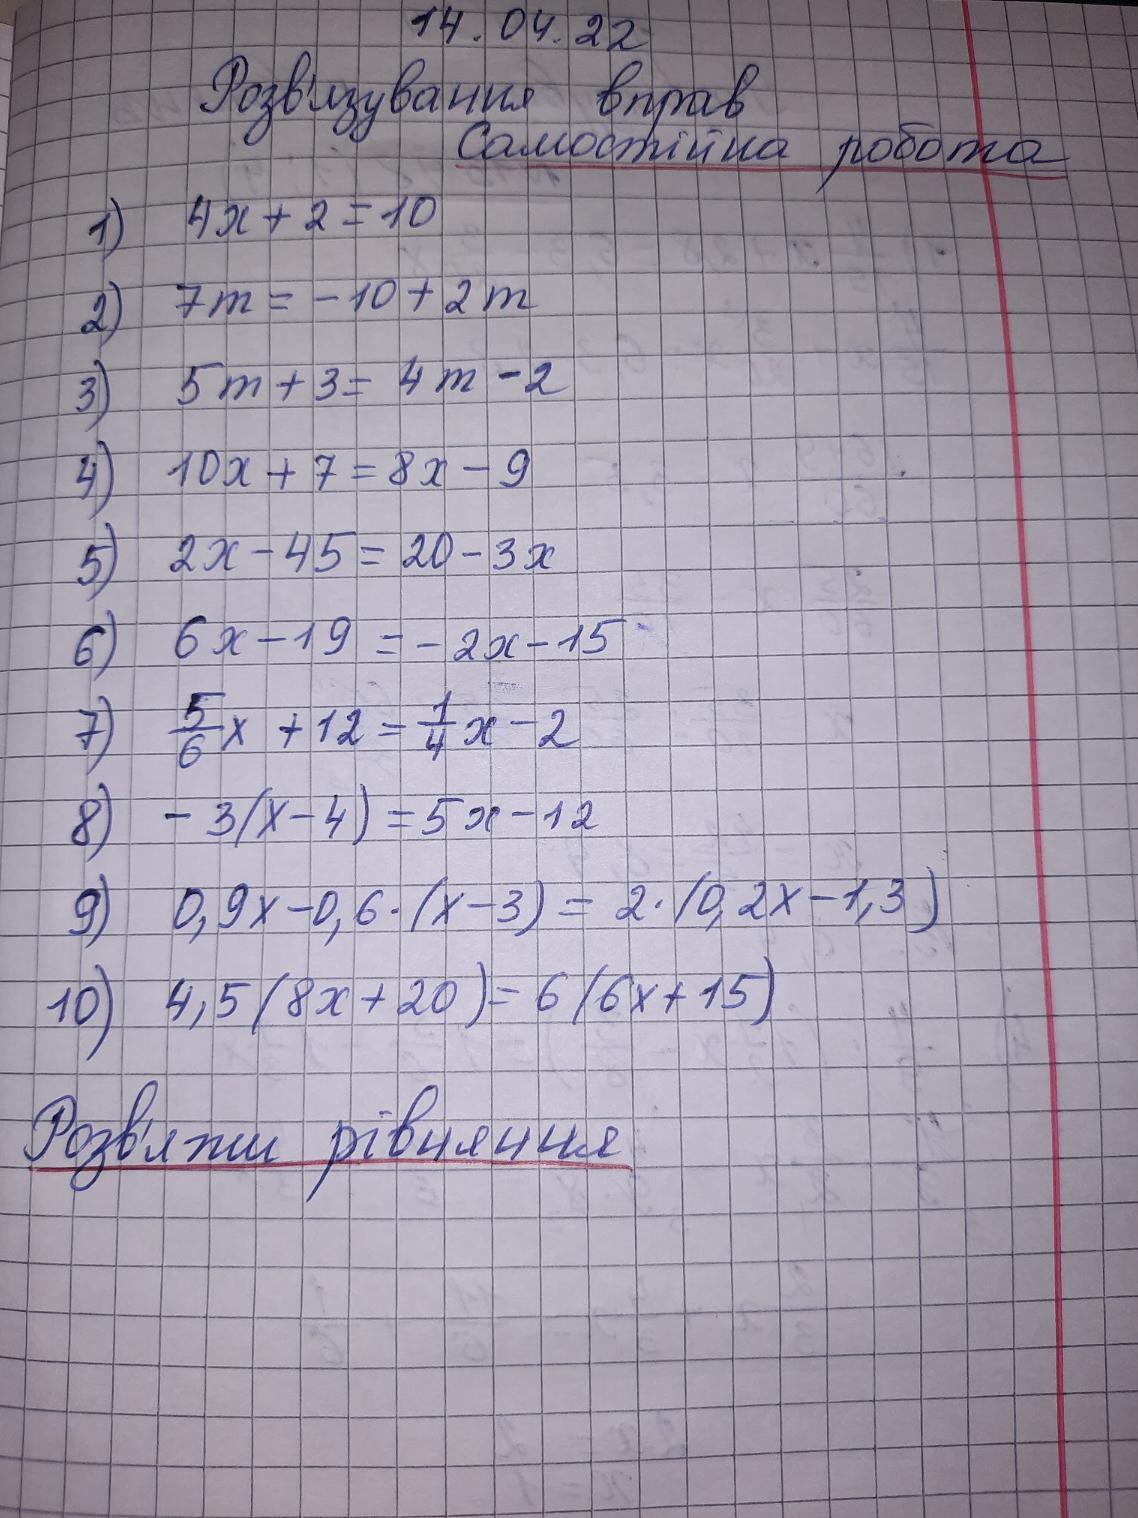 14.04.22
Розв'язування вправ
Самостійна робота
1) 4x + 2 = 10
2) 7m = - 10 + 2m
3) 5m + 3 = 4m - 2
4) 10x + 7 = 8x - 9
5) 2x - 45 = 20 - 3x
6) 6x - 19 = - 2x - 15
7) 5/6 x + 12 = 1/4 x - 2
8) - 3(x - 4) = 5x - 12
9) 0,9x - 0,6 · (x - 3) = 2 · (0,2x - 1,3)
10) 4,5(8x + 20) = 6(6x + 15)
Розв'яжи рівняння